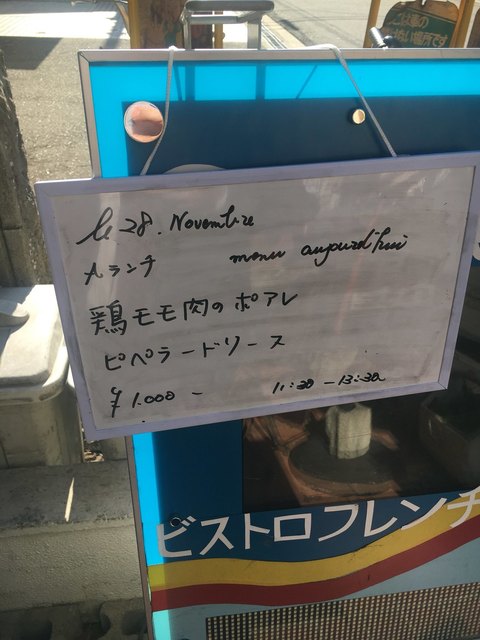 le 28. Novembre
Aランチ menu aujourd'hui
鶏モモ肉のポアレ
ピペラードソース
¥1.000-
11:30-13:30
ビストロフレンチ